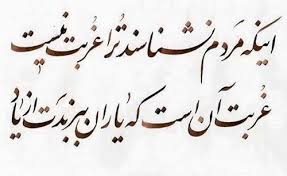 اینکه مَردم نشناسند تُرا غُربت نیست
غُربت آن است که یاران ببرندَت از یاد